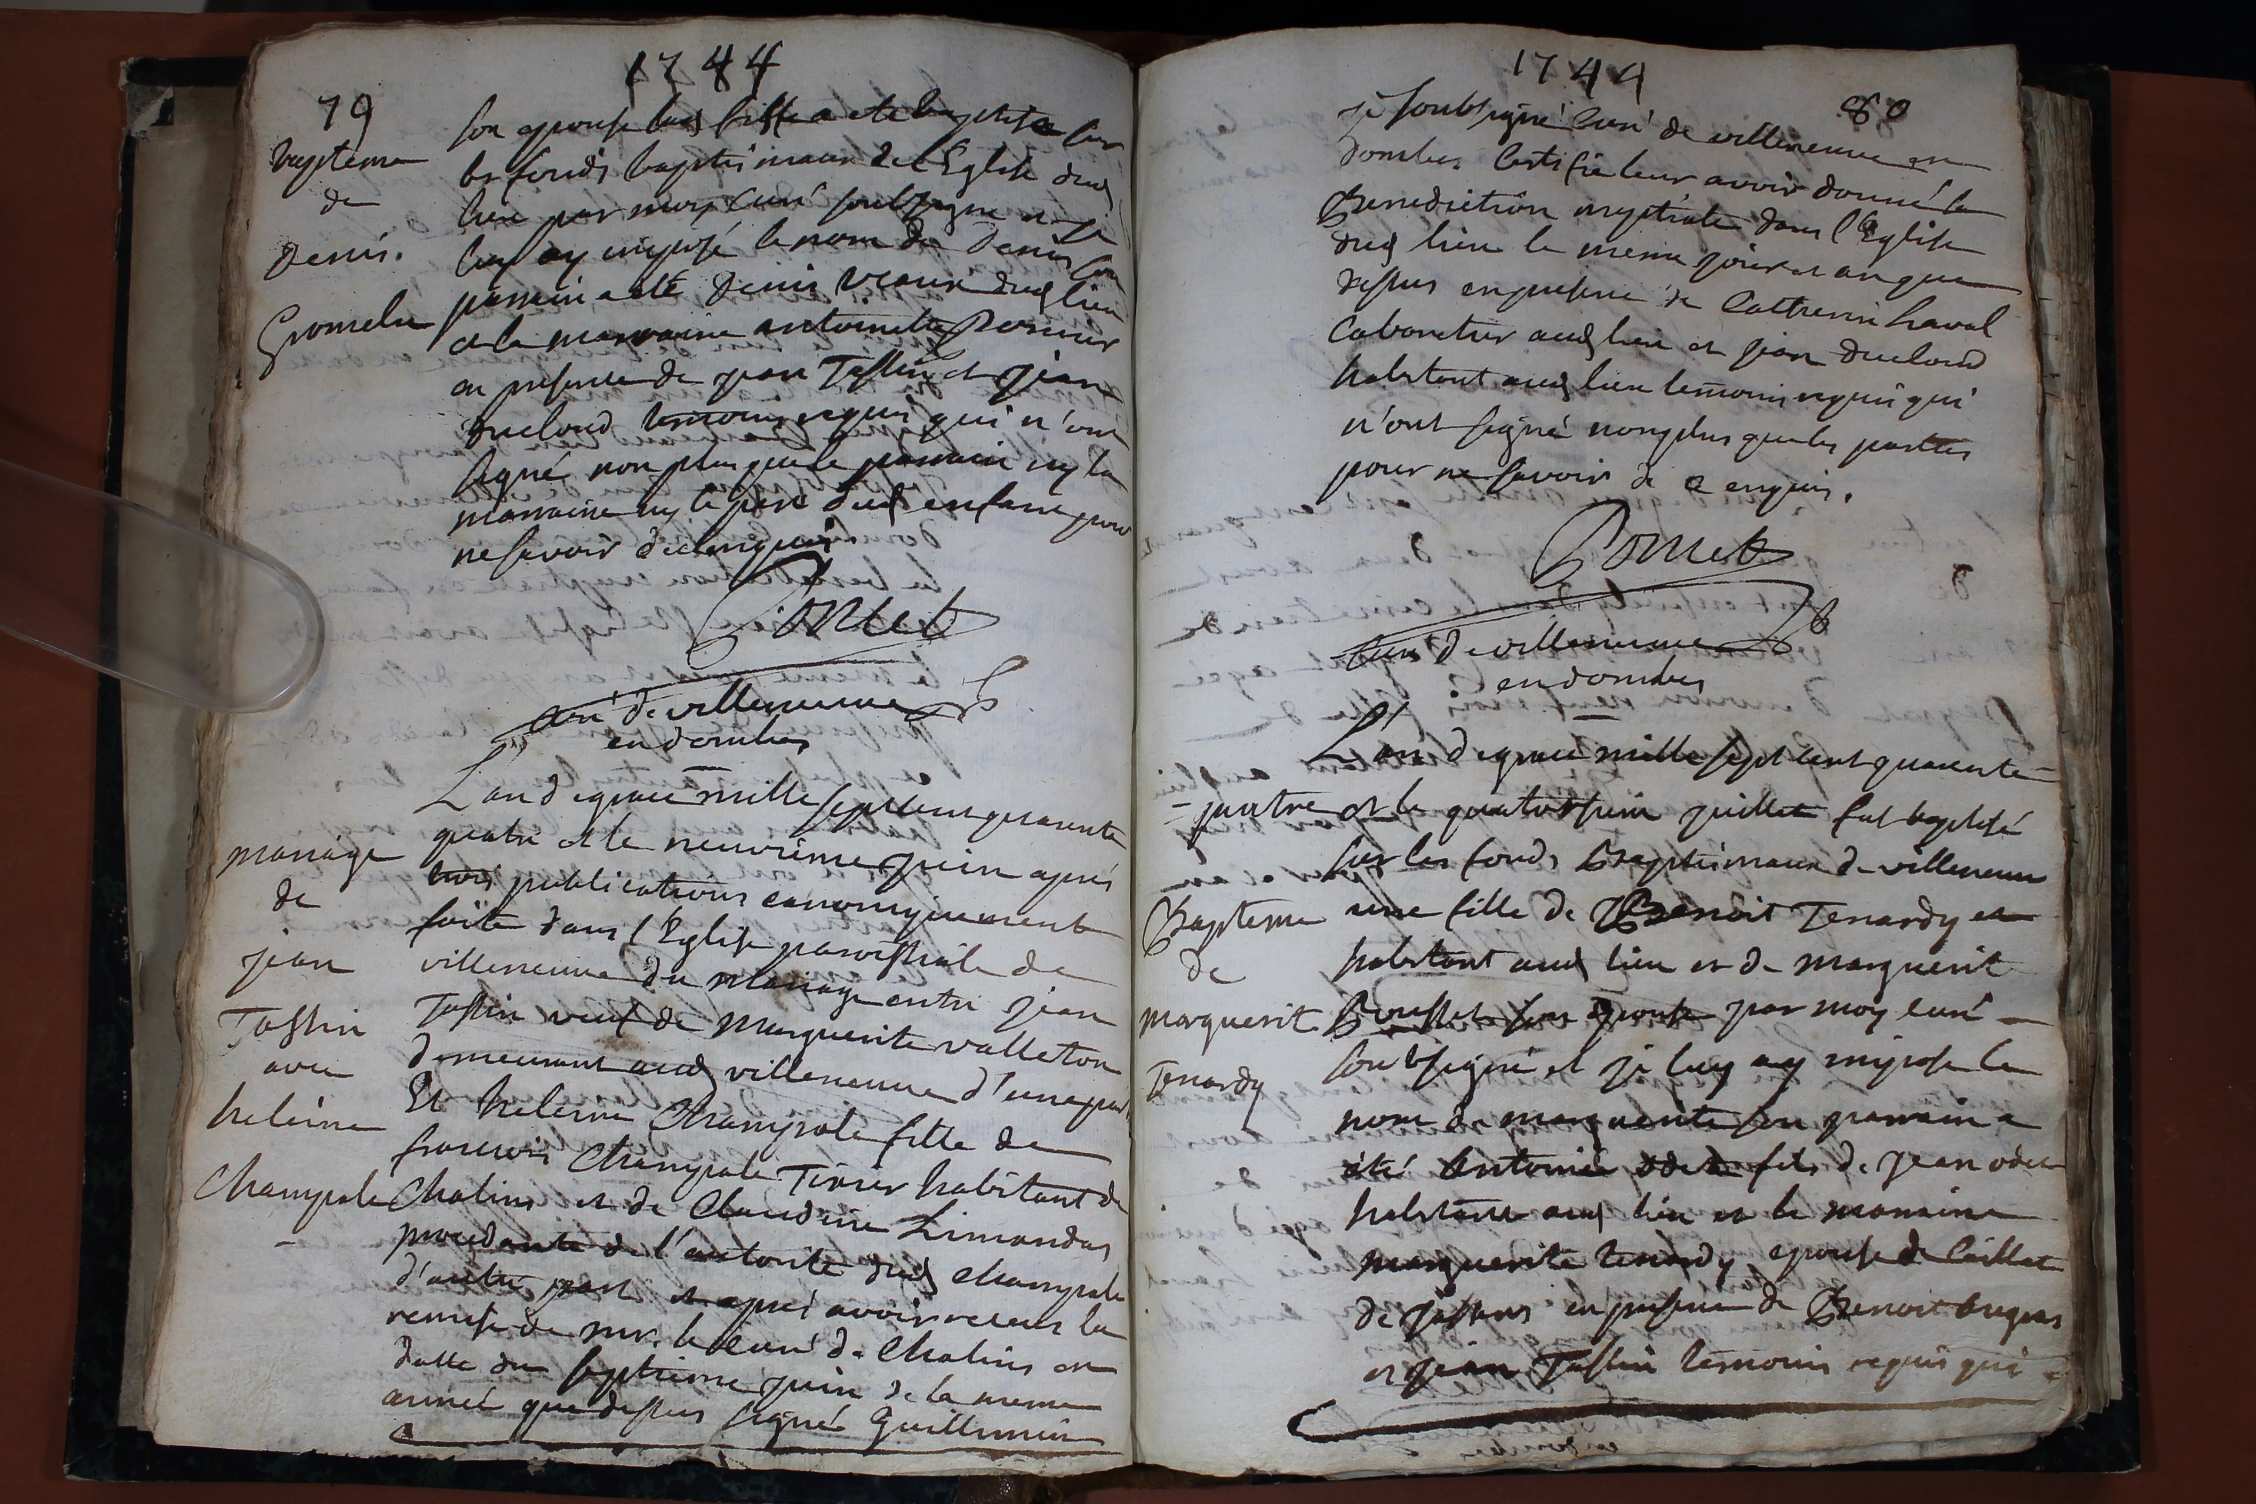 1744
79
Bapteme
de
Denis.
Gromelu
son epouse lad fille a ete baptisée sur
les fonds baptismaux de l'Eglise dud
lieu par moy Curé soubsigne et je
luy ay imposé le nom de Denis son
parrain a eté Denis dud lieu
et la marraine antoinette
en presence de jean Tassin et jean
Ducloud temoins requis qui n'ont
signé non plus que le parrain ny la
marraine ny le pere dud enfant pour
ne savoir de ce enquis.
Pomet
curé de villeneuve
en dombes
mariage
de
jean
Tassin
avec
heleine
Champale
L'an de grace mille sept cent quarante
quatre et le neuvieme juin après
trois publications canoniquement
faite dans l'Eglise parroissiale de
villeneuve du Mariage entre jean
Tassin veuf de Marguerite valleton
demeurant aud villeneuve d'une part
Et heleine Champale fille de
francois Champale Tixier habitant de
Chaleins et de Claudine Limandas
procedante de l'autorité dud Champale
d'autre part et après avoir receus la
remise de mr. le Curé de Chaleins en
datte du septieme juin de la meme
année que dessus signé Guillemin
1744
80
je soubsigné Curé de villeneuve en
dombes certifie leur avoir donné la
Benediction nuptiale dans l'Eglise
dud lieu le meme jour et an que
dessus en presence de Catherin Laval
Cabaretier aud lieu et jean Ducloud
habitant aud lieu temoins requis qui
n'ont signé non plus que les parties
pour ne savoir de ce enquis.
Pomet
Curé de villeneuve
en dombes
L'an de grace mille sept cent quarante
=quatre et le quatorsieme juillet fut baptisé
sur les fonds Baptismaux de villeneuve
Bapteme
de
marguerite
Tenardy
une fille de Benoit Tenardy et
habitant aud lieu et de marguerite
Rousset son epouse par moy curé
soubsigné et je luy ay imposé le
nom de marguerite son parrain a
été Antoine odet fils de jean odet
habitant aud lieu et la marraine
marguerite tenardy epouse de Caillat
de jassans en presence de Benoit
et jean Tassin temoins requis qui